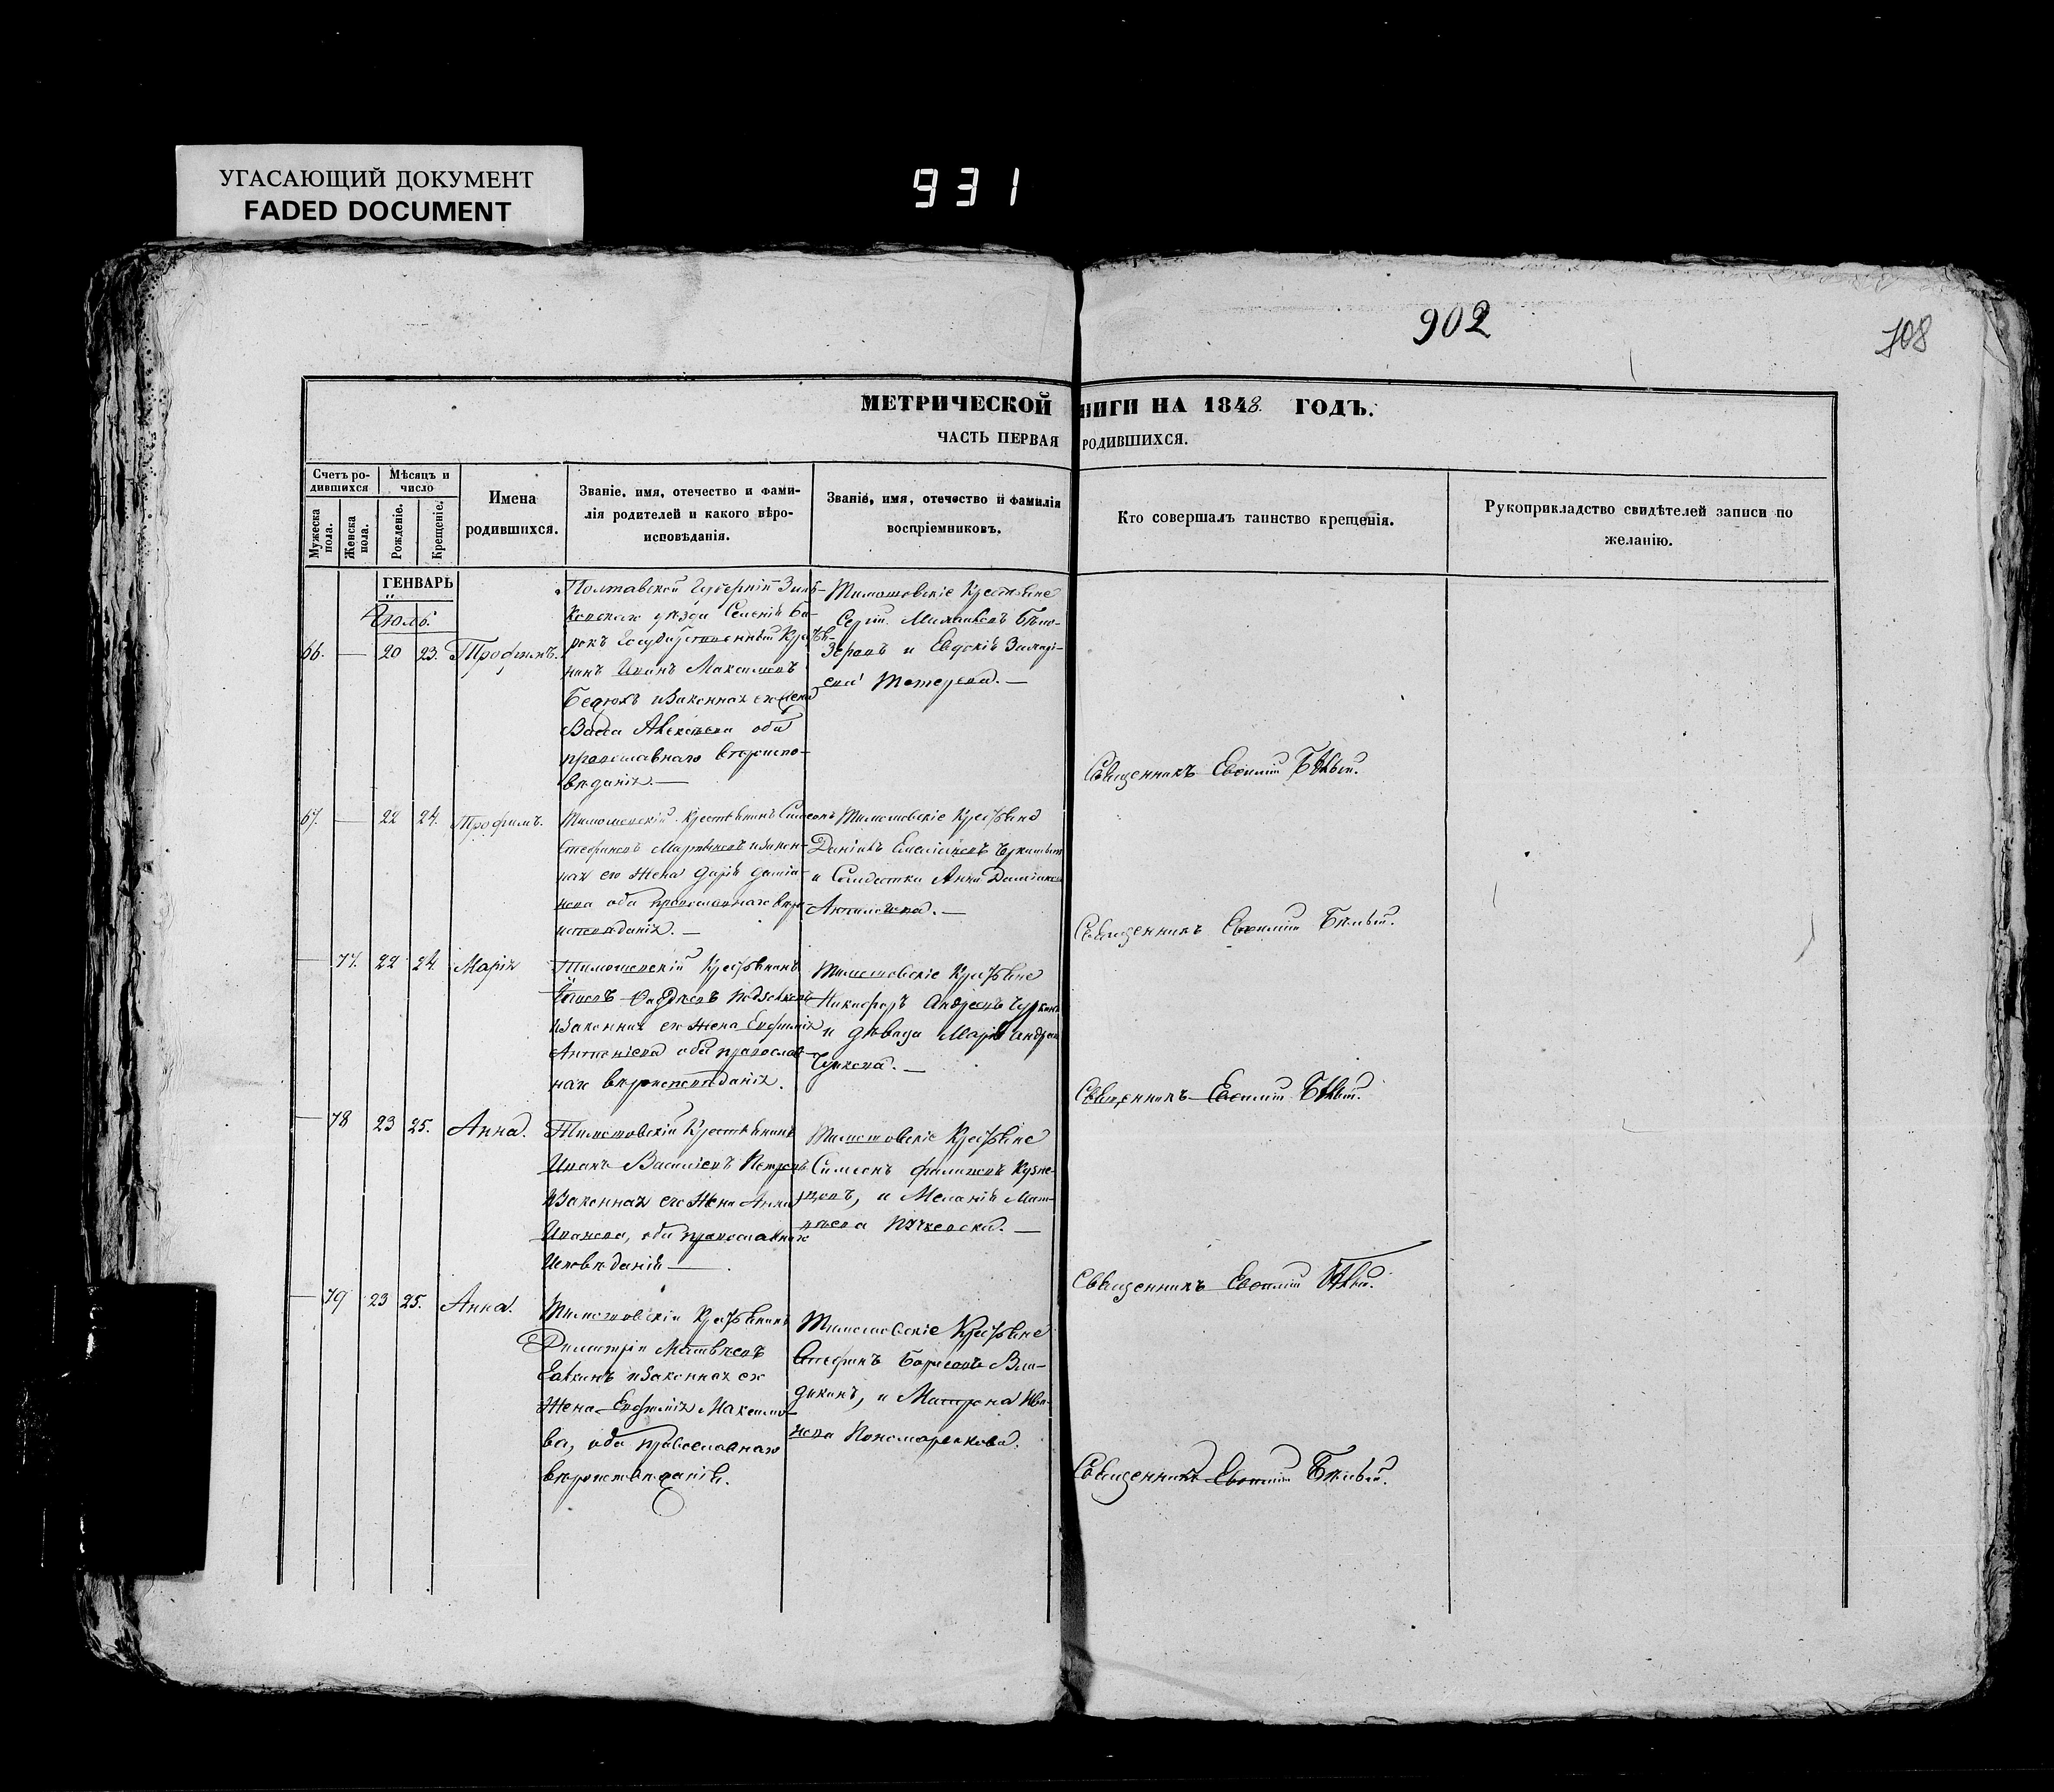 УГАСАЮЩИЙ ДОКУМЕНТ
FADED DOCUMENT
931
902
108
МЕТРИЧЕСКОЙ НИГИ НА 1848. ГОДЪ.
ЧАСТЬ ПЕРВАЯ РОДИВШИХСЯ.
Счетъ ро-
дившихся
Мѣсяцъ и
число
Мужеска пола.
Женска пола.
Рожденіе.
Крещеніе.
Имена
родившихся.
Званіе, имя, отечество и фами-
лія родителей и какого вѣро-
исповѣданія.
Званіе, имя, отечество и фамилія
воспріемниковъ.
Кто совершалъ таинство крещенія.
Рукоприкладство свидѣтелей записи по
желанію.
ГЕНВАРЬ
Іюль
66. — 20 23. Трофимъ.
Полтавской Губерніи Зинь-
ковскаго уѣзда Селенія
Государственный Кресть-
нинъ Иванъ Максимовъ
изаконная его Жена
Васса Алексѣева оба
православнаго вѣроиспо-
вѣданія. —
Тимошовскіе Крестьяне
Сергій Михайловъ Бѣло-
зеровъ и Евдокія
Тетерева. —
Священникъ Евѳимій Бѣлый.
67. — 22 24. Трофимъ.
Тимошевскій Крестьянинъ Симеонъ
Стефановъ Мартыновъ изакон-
ная его Жена Дарія Даміа-
нова оба православнаго вѣро-
исповѣданія. —
Тимошовскіе Крестьяне
Даніилъ
и Солдатка Анна
Священникъ Евѳимій Бѣлый.
— 77. 22 24. Марія
Тимошевскій Крестьянинъ
изаконная его Жена Евфимія
Антоніева оба православ-
наго вѣроисповѣданія.
Тимошовскіе Крестьяне
Никифоръ Андреевъ
и дѣвица Марія Андреева
Чуикова. —
Священникъ Евѳимій Бѣлый.
— 78 23 25. Анна.
Тимошовскій Крестьянинъ
Иванъ Васильевъ Петровъ
изаконная его Жена Анна
Иванова, оба православнаго
Исповѣданія —.
Тимошовскіе Крестьяне
Симеонъ Филиповъ Кузне-
цовъ, и Меланія Мат-
вѣева —
Священникъ Евѳимій Бѣлый.
— 79 23 25. Анна.
Тимошовскій Крестьянинъ
Димитрій Матвѣевъ
изаконная его
Жена Евфимія Максимо-
ва, оба православнаго
вѣроисповѣданія.
Тимошовскіе Крестьяне
Стефанъ Борисовъ Вла-
дыкинъ, и Матрона Ива-
нова Пономаренкова.
Священникъ Евѳимій Бѣлый.